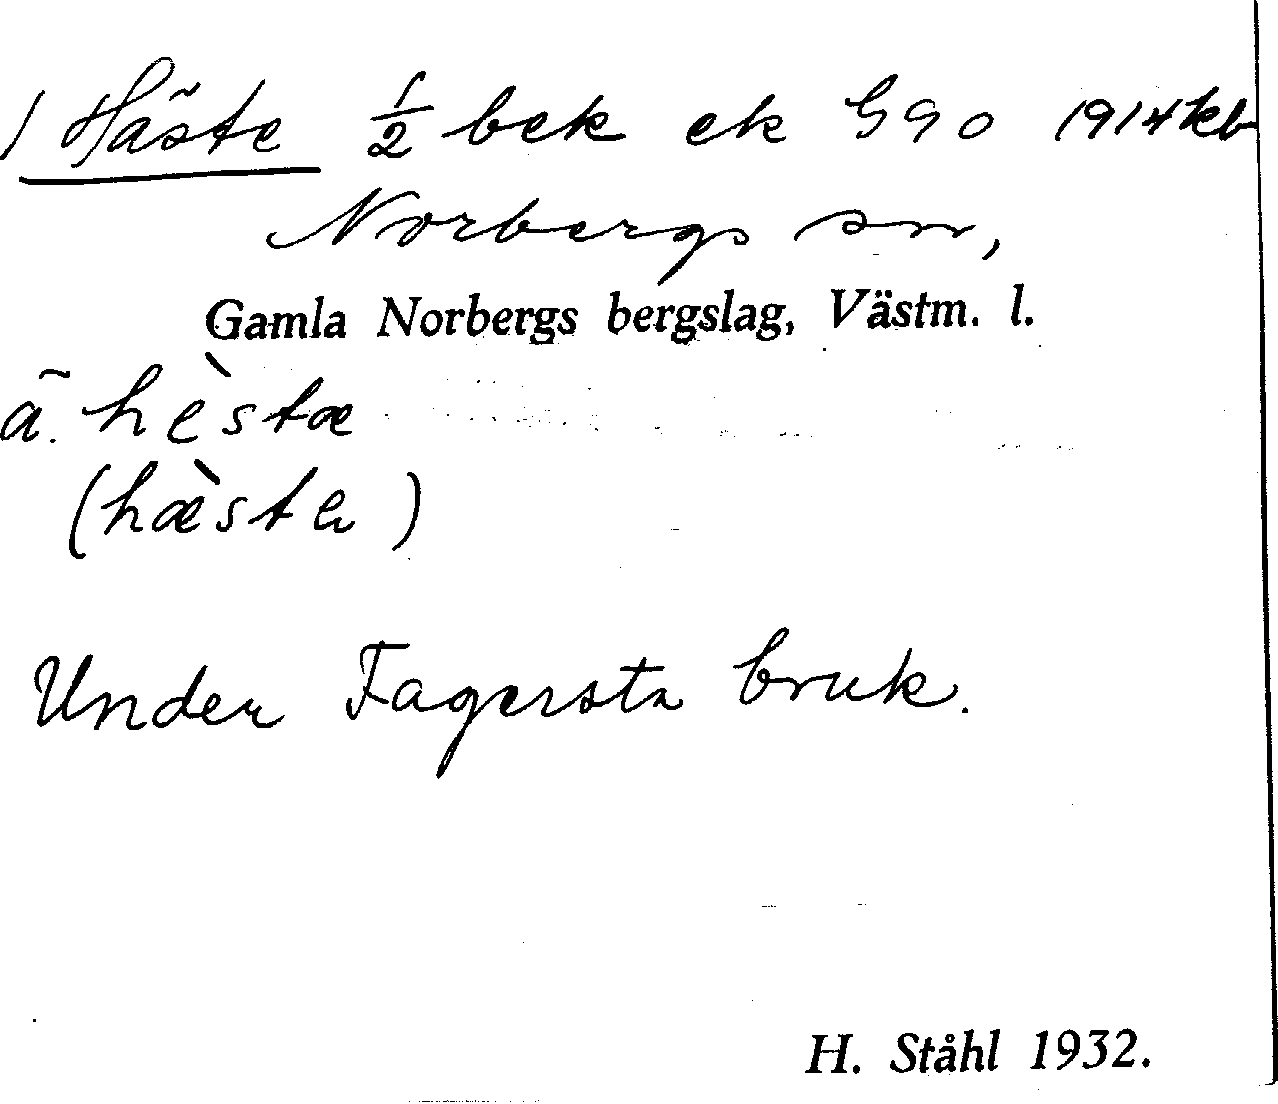 1 Häste ½ bek ek G90 1914 kb
Norbergs sn,
Gamla Norbergs bergslag, Västm. l.
ä. hèstæ
(hæ̀sta)
Under Fagersta bruk.
H. Ståhl 1932.